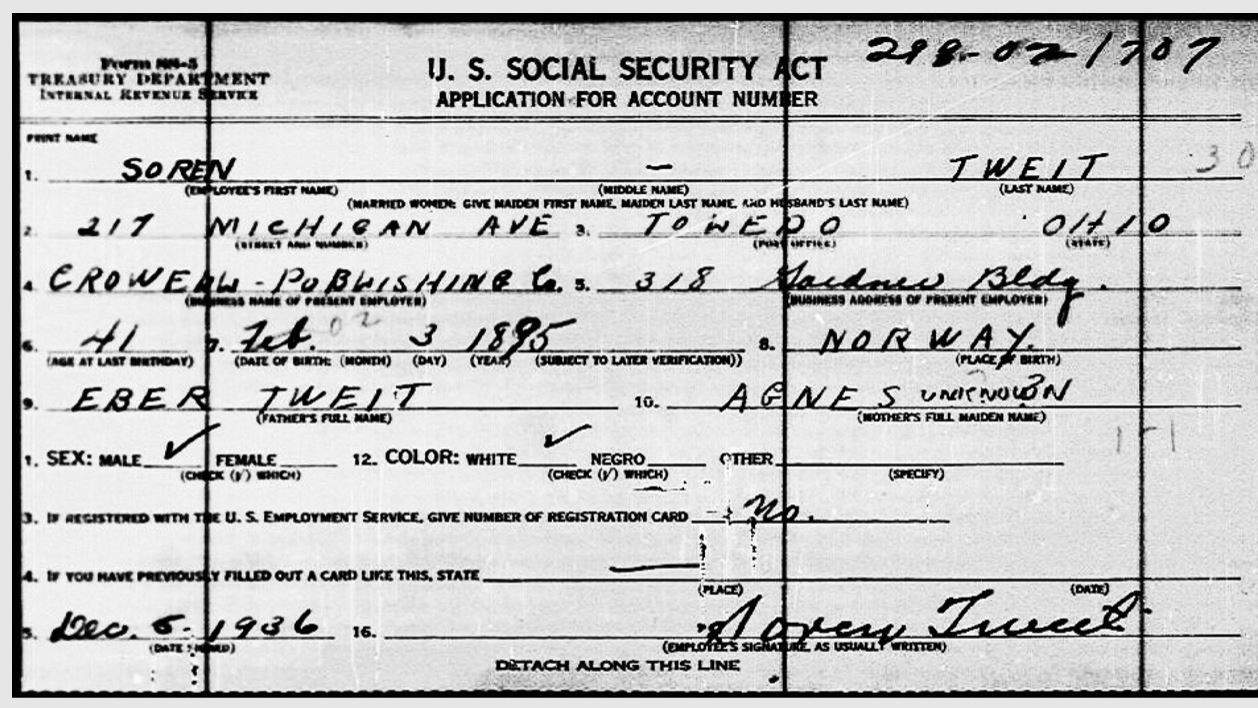 Form SS-5
TREASURY DEPARTMENT
INTERNAL REVENUE SERVICE
U. S. SOCIAL SECURITY ACT
APPLICATION FOR ACCOUNT NUMBER
298-02-1707
PRINT NAME
1. SOREN — TWEIT 30
(EMPLOYEE'S FIRST NAME) (MIDDLE NAME) (LAST NAME)
(MARRIED WOMEN: GIVE MAIDEN FIRST NAME, MAIDEN LAST NAME, AND HUSBAND'S LAST NAME)
2. 217 MICHIGAN AVE 3. TOWEDO OHIO
(STREET AND NUMBER) (POST OFFICE) (STATE)
4. CROWELL-PUBLISHING Co. 5. 318 Gardner Bldg.
(BUSINESS NAME OF PRESENT EMPLOYER) (BUSINESS ADDRESS OF PRESENT EMPLOYER)
6. 41 7. Feb. 02 3 1895 8. NORWAY.
(AGE AT LAST BIRTHDAY) (DATE OF BIRTH: (MONTH) (DAY) (YEAR) (SUBJECT TO LATER VERIFICATION)) (PLACE OF BIRTH)
9. EBER TWEIT 10. AGNES UNKNOWN
(FATHER'S FULL NAME) (MOTHER'S FULL MAIDEN NAME)
1-1
1. SEX: MALE ✓ FEMALE 12. COLOR: WHITE ✓ NEGRO OTHER
(CHECK (✓) WHICH) (CHECK (✓) WHICH) (SPECIFY)
3. IF REGISTERED WITH THE U. S. EMPLOYMENT SERVICE, GIVE NUMBER OF REGISTRATION CARD No.
4. IF YOU HAVE PREVIOUSLY FILLED OUT A CARD LIKE THIS, STATE —
(PLACE) (DATE)
5. Dec. 5- 1936 16. Soren Tweit
(DATE SIGNED) (EMPLOYEE'S SIGNATURE, AS USUALLY WRITTEN)
DETACH ALONG THIS LINE